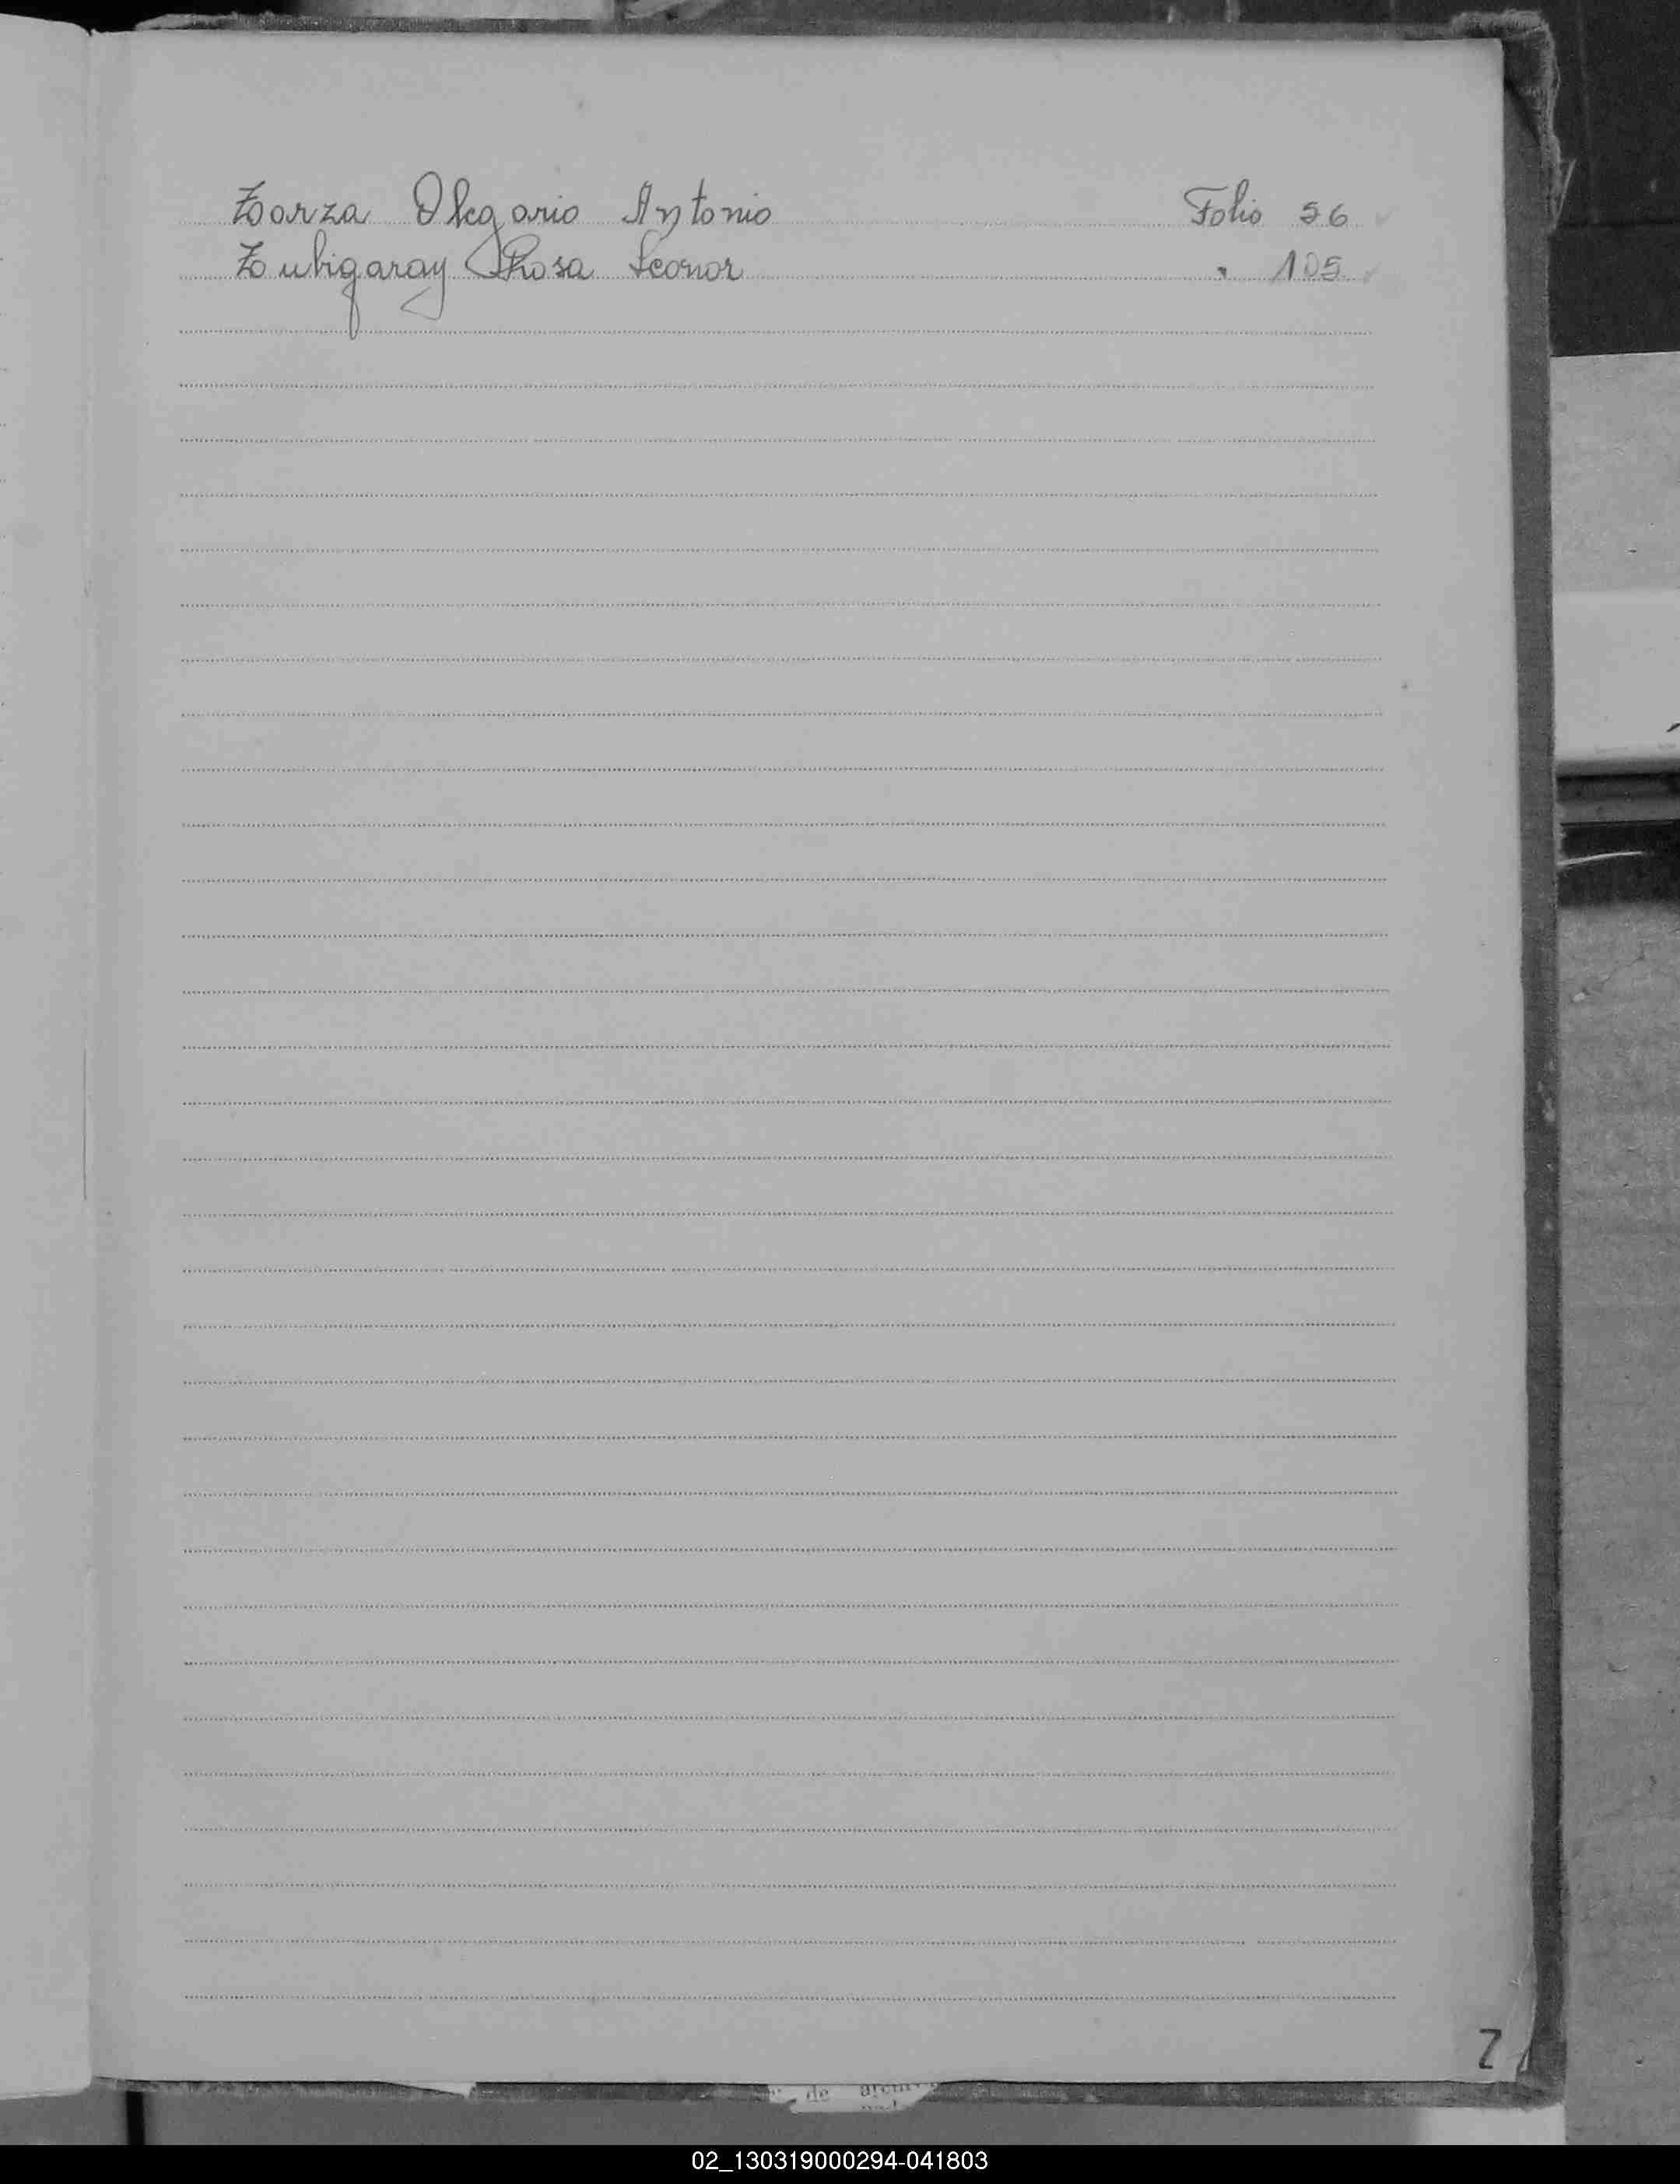 Zarza Olegario Antonio Folio 56
Zubigaray Rosa Leonor " 105
Z
de
02_130319000294-041803